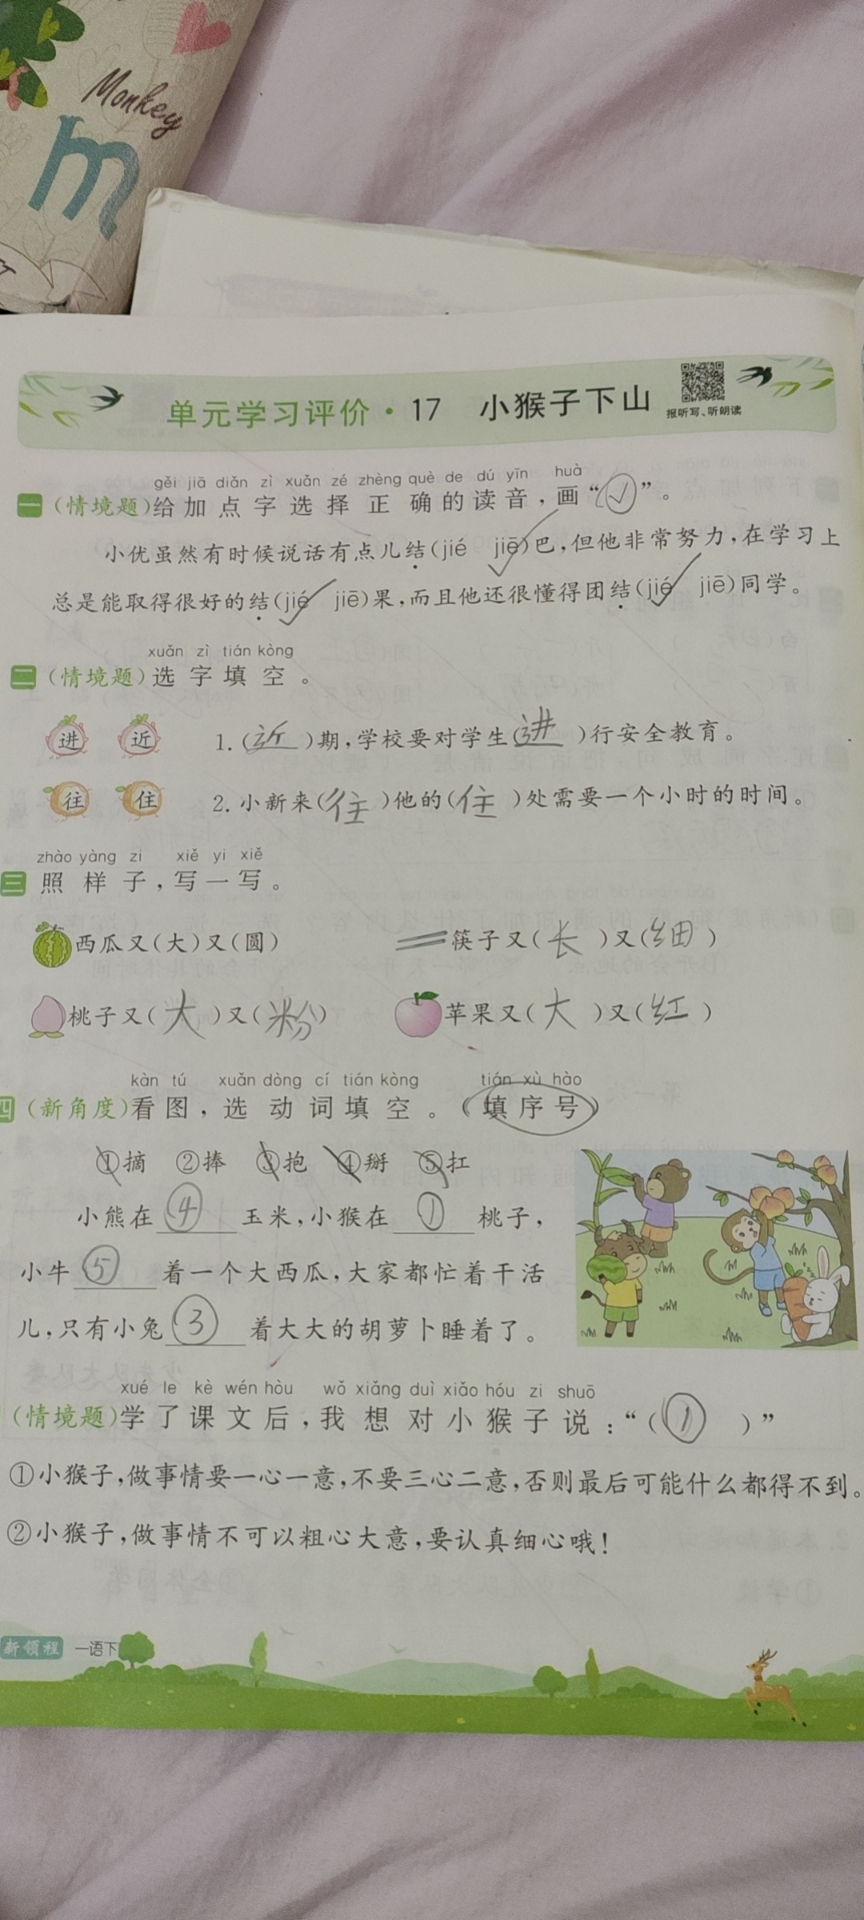 Monkey
m
单元学习评价·17 小猴子下山
报听写、听朗读
gěi jiā diǎn zì xuǎn zé zhèng què de dú yīn huà
一 (情境题)给加点字选择正确的读音,画“√”。
小优虽然有时候说话有点儿结(jié jiē)巴,但他非常努力,在学习上
总是能取得很好的结(jié jiē)果,而且他还很懂得团结(jié jiē)同学。
xuǎn zì tián kòng
二 (情境题)选字填空。
进 近 1.(近)期,学校要对学生(进)行安全教育。
往 住 2.小新来(往)他的(住)处需要一个小时的时间。
zhào yàng zi xiě yi xiě
三 照样子,写一写。
西瓜又(大)又(圆) 筷子又(长)又(细)
桃子又(大)又(粉) 苹果又(大)又(红)
kàn tú xuǎn dòng cí tián kòng tián xù hào
四 (新角度)看图,选动词填空。(填序号)
①摘 ②捧 ③抱 ④掰 ⑤扛
小熊在④玉米,小猴在①桃子,
小牛⑤着一个大西瓜,大家都忙着干活
儿,只有小兔③着大大的胡萝卜睡着了。
xué le kè wén hòu wǒ xiǎng duì xiǎo hóu zi shuō
(情境题)学了课文后,我想对小猴子说:“(①)”
①小猴子,做事情要一心一意,不要三心二意,否则最后可能什么都得不到。
②小猴子,做事情不可以粗心大意,要认真细心哦!
新领程 一语下